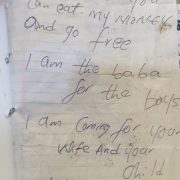 Can eat my money
and go free
I am the baba
for the boys
I am Coming for your
Wife And your
child